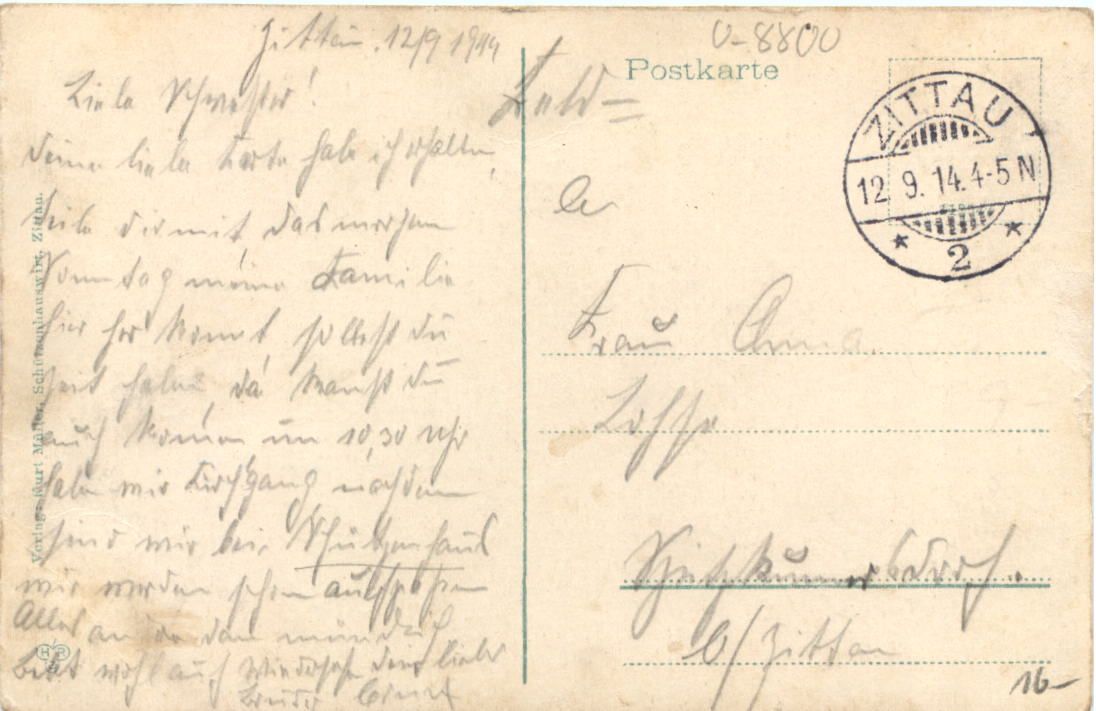 Zittau, 12/9 1914
Liebe Schwester!
Deine liebe Karte habe ich erhalten,
teile dir mit, das morgen
Sonntag meine Familie
hier her komt, solltest du
Zeit haben, da kanst du
auch komen um 10,30 Uhr
haben wir Kirchgang nachdem
sind wir bei Schützenhaus
wir werden schon aufpassen
Alles an de dan mündlich
Lebt wohl auf Wiedersehn dein lieber
Bruder
Verlag: Kurt Müller, Schützenhauswirt, Zittau.
HR
U-8800
Postkarte
Feld=
ZITTAU
12 9. 14. 4-5 N
* 2 *
Frau Anna
Lohse
b/Zittau
16-